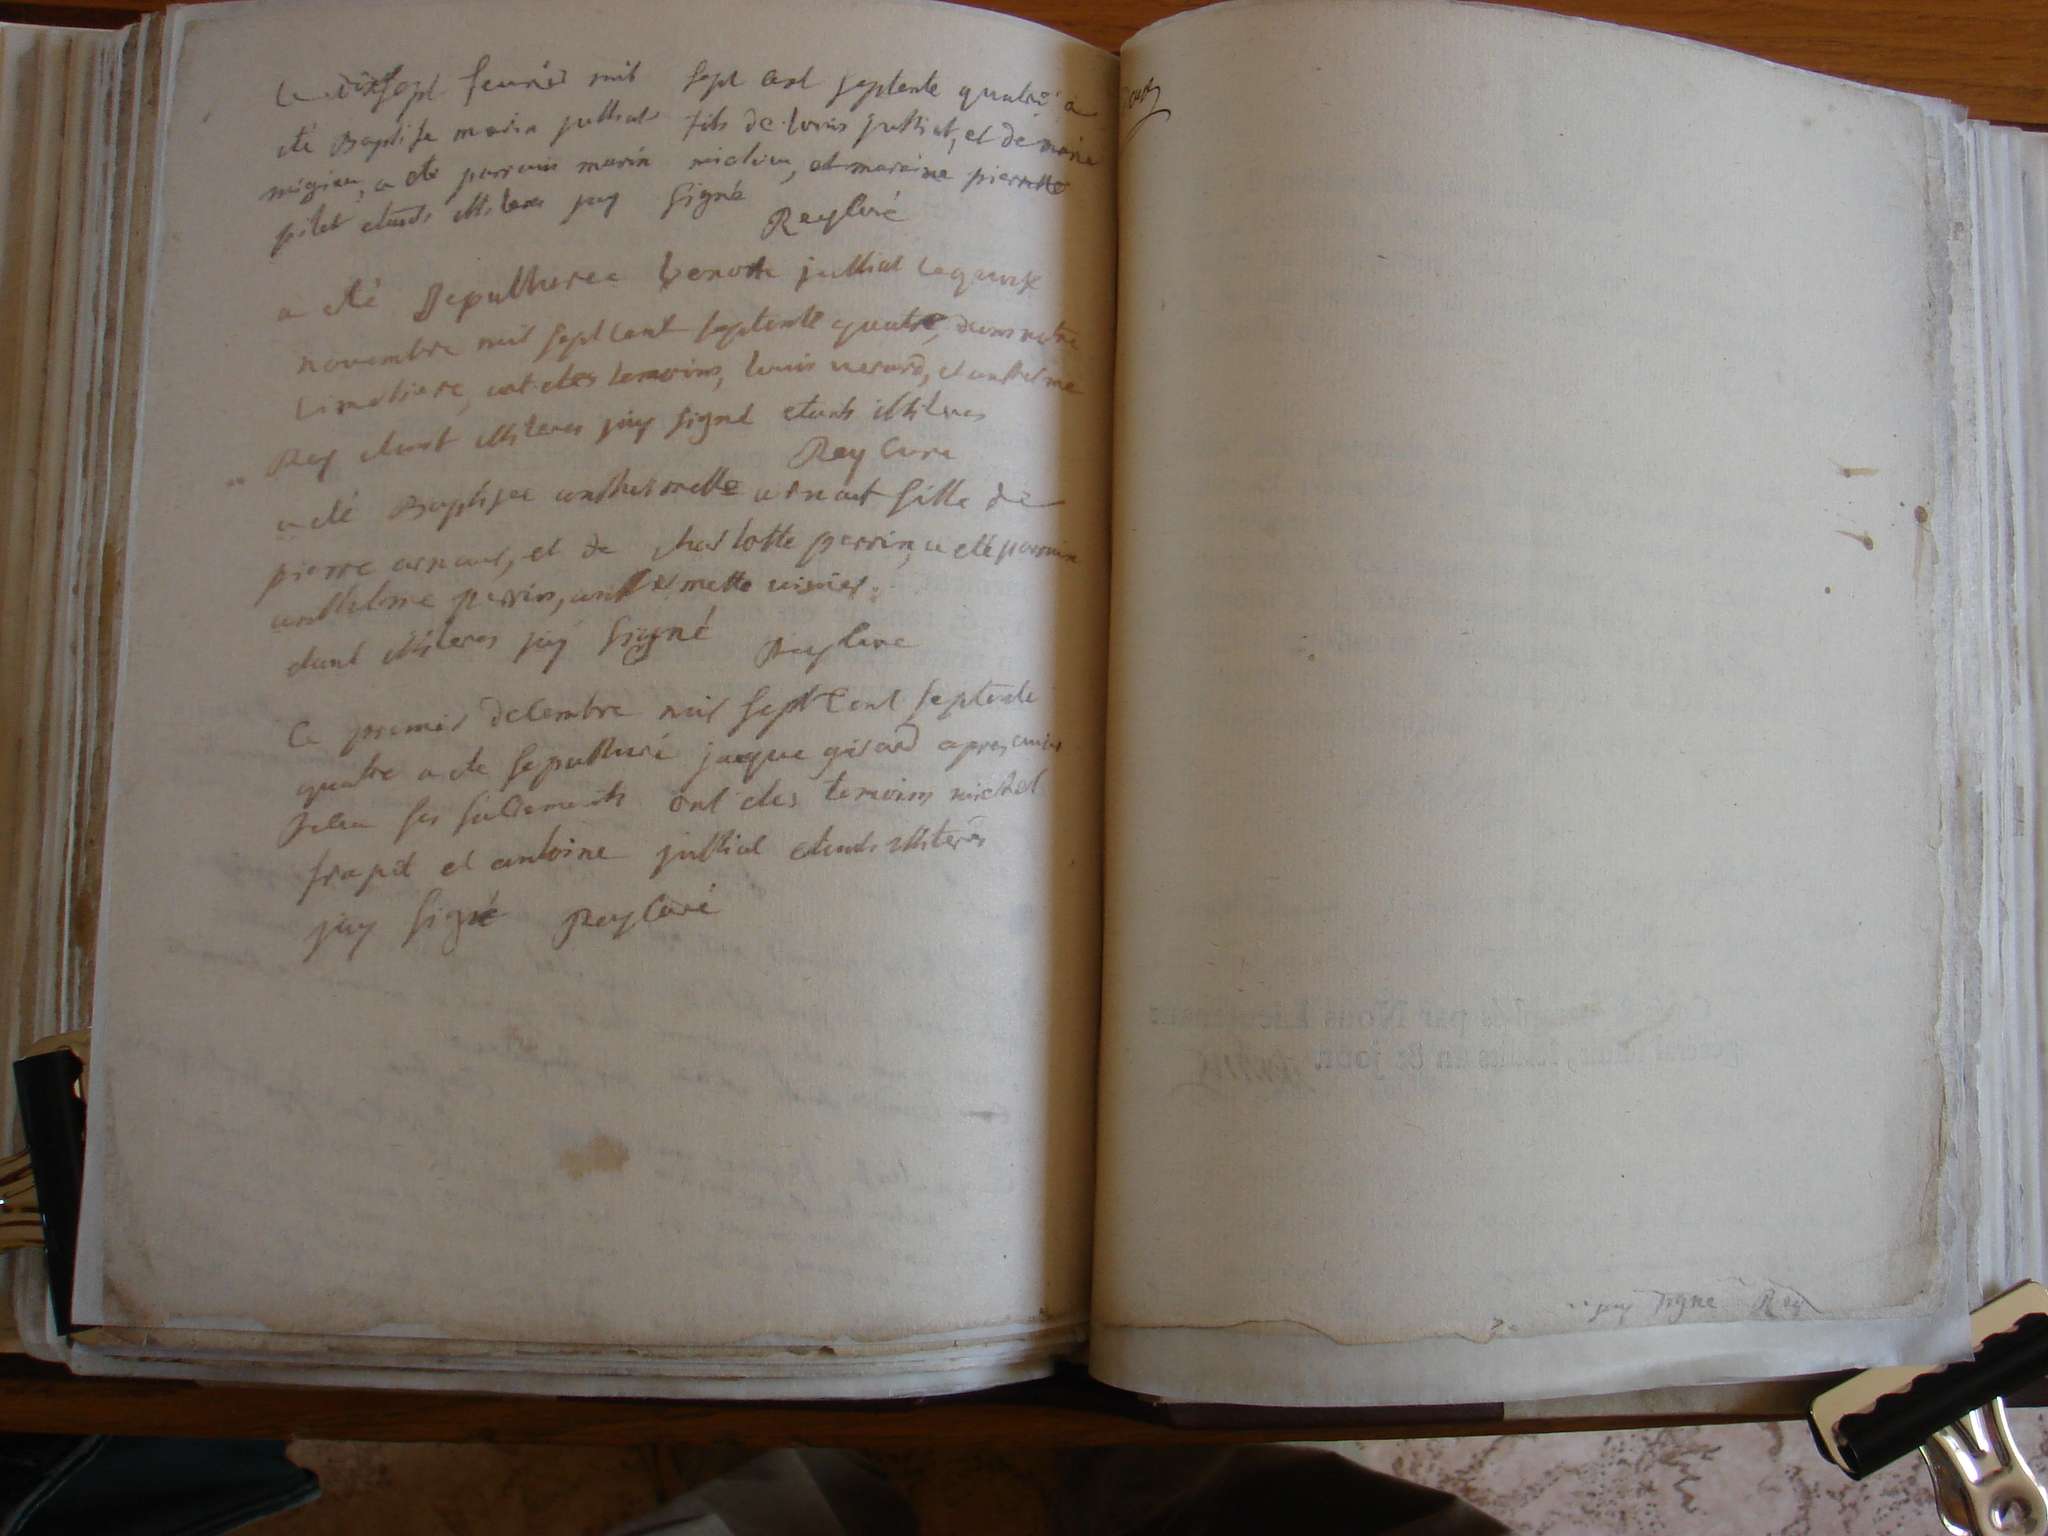 Le dixsept feurier mil sept cent septente quatre a
eté Baptise marin julliat fils de louis julliat, et de marie
a eté parrain marin et maraine pierrette
pilet etants illiteres jay signé
Rey Curé
a eté Sepulturee benoite julliat le quinze
novembre mil sept cent septente quatre, dans notre
Cimetiere, ont etes temoins, louis uerard, et anthelme
Rey etant illiteres jay signé etants illiteres
Rey Cure
a eté Baptisee anthelmette arnaut fille de
pierre arnaut, et de charlotte perrin, a eté parrain
anthelme perrin, anthelmette
etant illiteres jay signé Rey Cure
Ce premier decembre mil sept Cent septente
quatre a ete sepulturé jaque girard apres auoir
Receu ses sacrements ont etes temoins michel
frapet et antoine julliat etants illiteres
jay signé Rey Curé
jay signe Rey